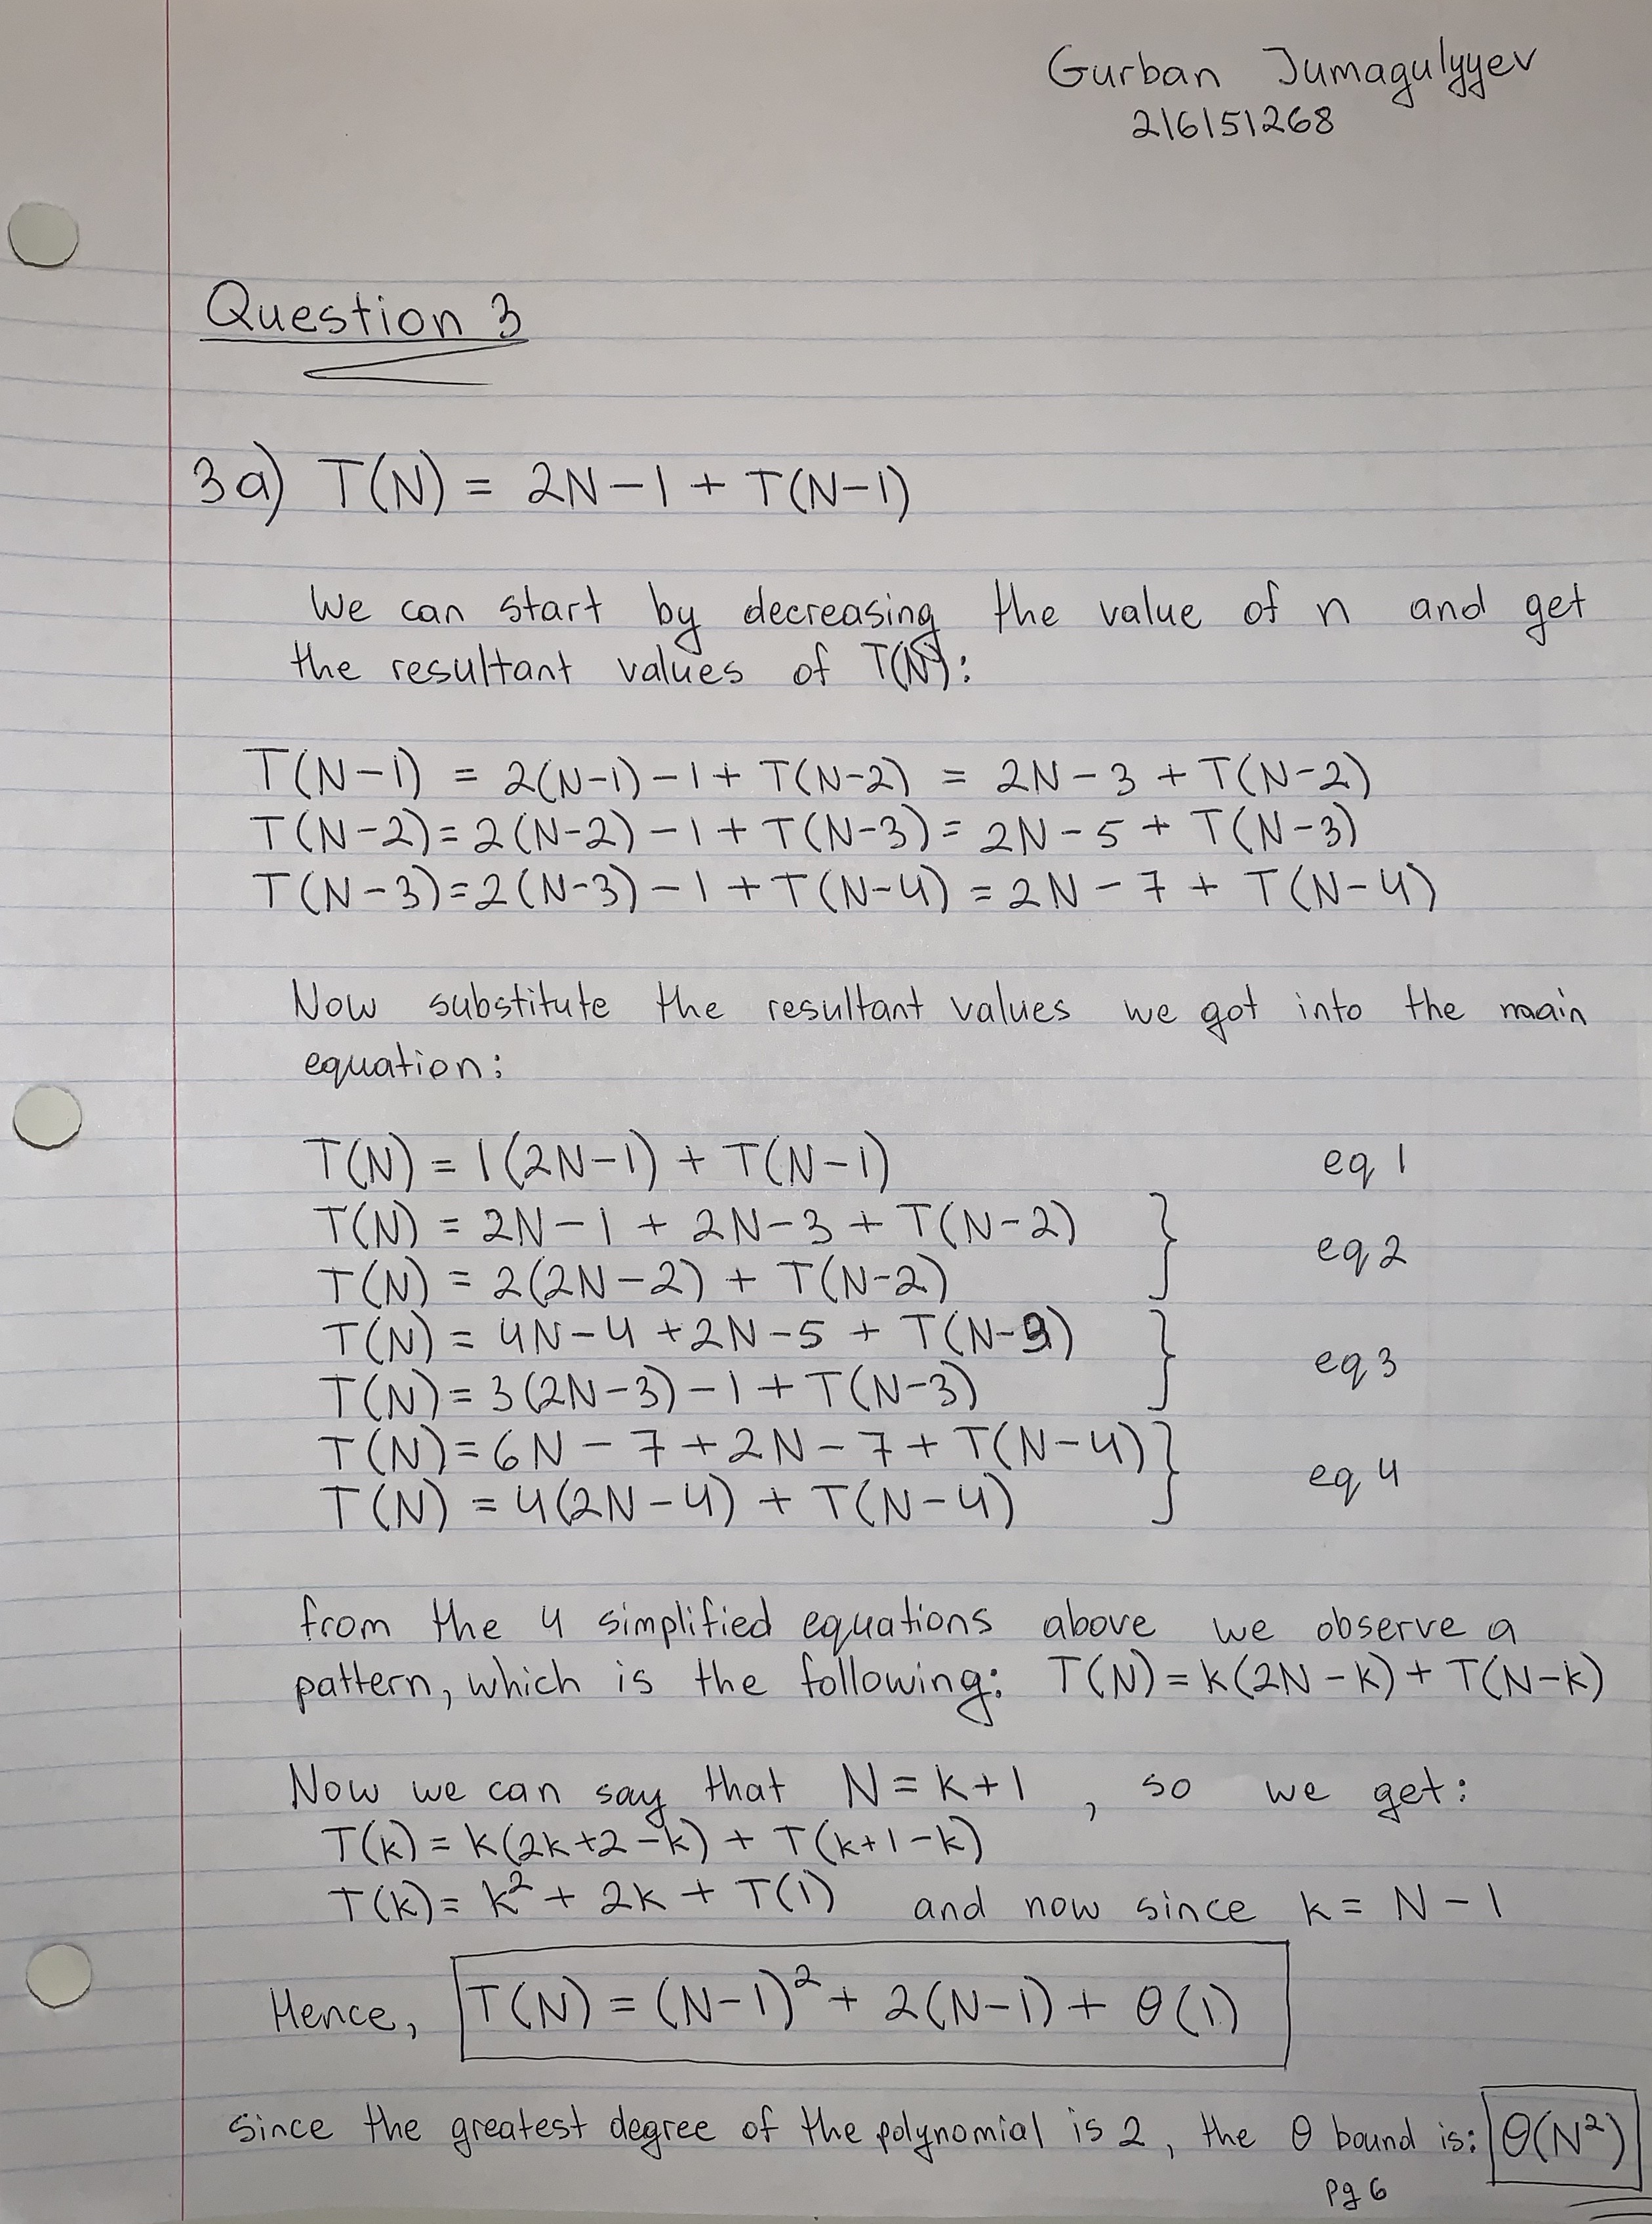 Gurban Jumagulyyev
216151268
Question 3
3a) T(N) = 2N-1 + T(N-1)
We can start by decreasing the value of n and get
the resultant values of T(N):
T(N-1) = 2(N-1)-1+ T(N-2) = 2N-3 + T(N-2)
T(N-2)=2(N-2)-1+T(N-3)= 2N-5+ T(N-3)
T(N-3)=2(N-3)-1+T(N-4)=2N-7+ T(N-4)
Now substitute the resultant values we got into the main
equation:
T(N) = 1(2N-1) + T(N-1) eq 1
T(N) = 2N-1 + 2N-3 + T(N-2)
T(N) = 2(2N-2) + T(N-2) eq 2
T(N) = 4N-4 +2N-5 + T(N-3)
T(N)= 3(2N-3)-1+T(N-3) eq 3
T(N)=6N-7+2N-7+T(N-4)
T(N) = 4(2N-4) + T(N-4) eq 4
from the 4 simplified equations above we observe a
pattern, which is the following: T(N)=k(2N-k)+T(N-k)
Now we can say that N=k+1 , so we get:
T(k)= k(2k+2-k) + T(k+1-k)
T(k)= k²+ 2k + T(1) and now since k= N-1
Hence, T(N)=(N-1)²+ 2(N-1)+ θ(1)
since the greatest degree of the polynomial is 2, the θ bound is: θ(N²)
pg 6